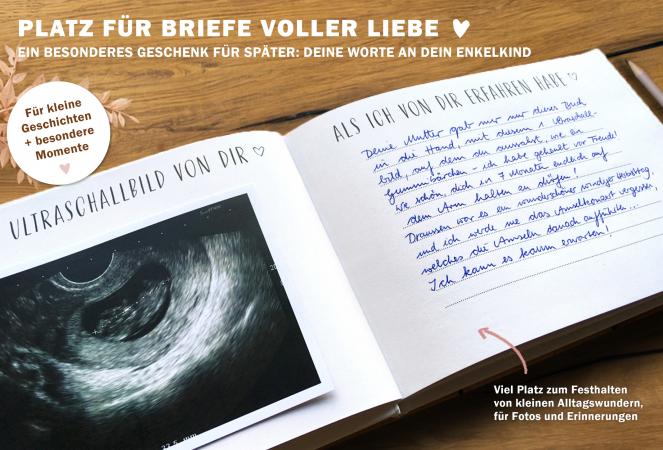 PLATZ FÜR BRIEFE VOLLER LIEBE
EIN BESONDERES GESCHENK FÜR SPÄTER: DEINE WORTE AN DEIN ENKELKIND
Für kleine
Geschichten
+ besondere
Momente
ULTRASCHALLBILD VON DIR
ALS ICH VON DIR ERFAHREN HABE
Deine Mutter gab mir nur dieses Buch
in die Hand, mit diesem 1. Ultraschall-
bild, auf dem du aussahst, wie ein
Gummibärchen - ich habe geheult vor Freude!
Wie schön, dich in 7 Monaten endlich auf
dem Arm halten zu dürfen!
Draussen war es ein wunderschöner sonniger Herbsttag,
und ich werde nie das Amselkonzert vergessen,
welches die Amseln danach aufführten...
Ich kann es kaum erwarten!
Viel Platz zum Festhalten
von kleinen Alltagswundern,
für Fotos und Erinnerungen